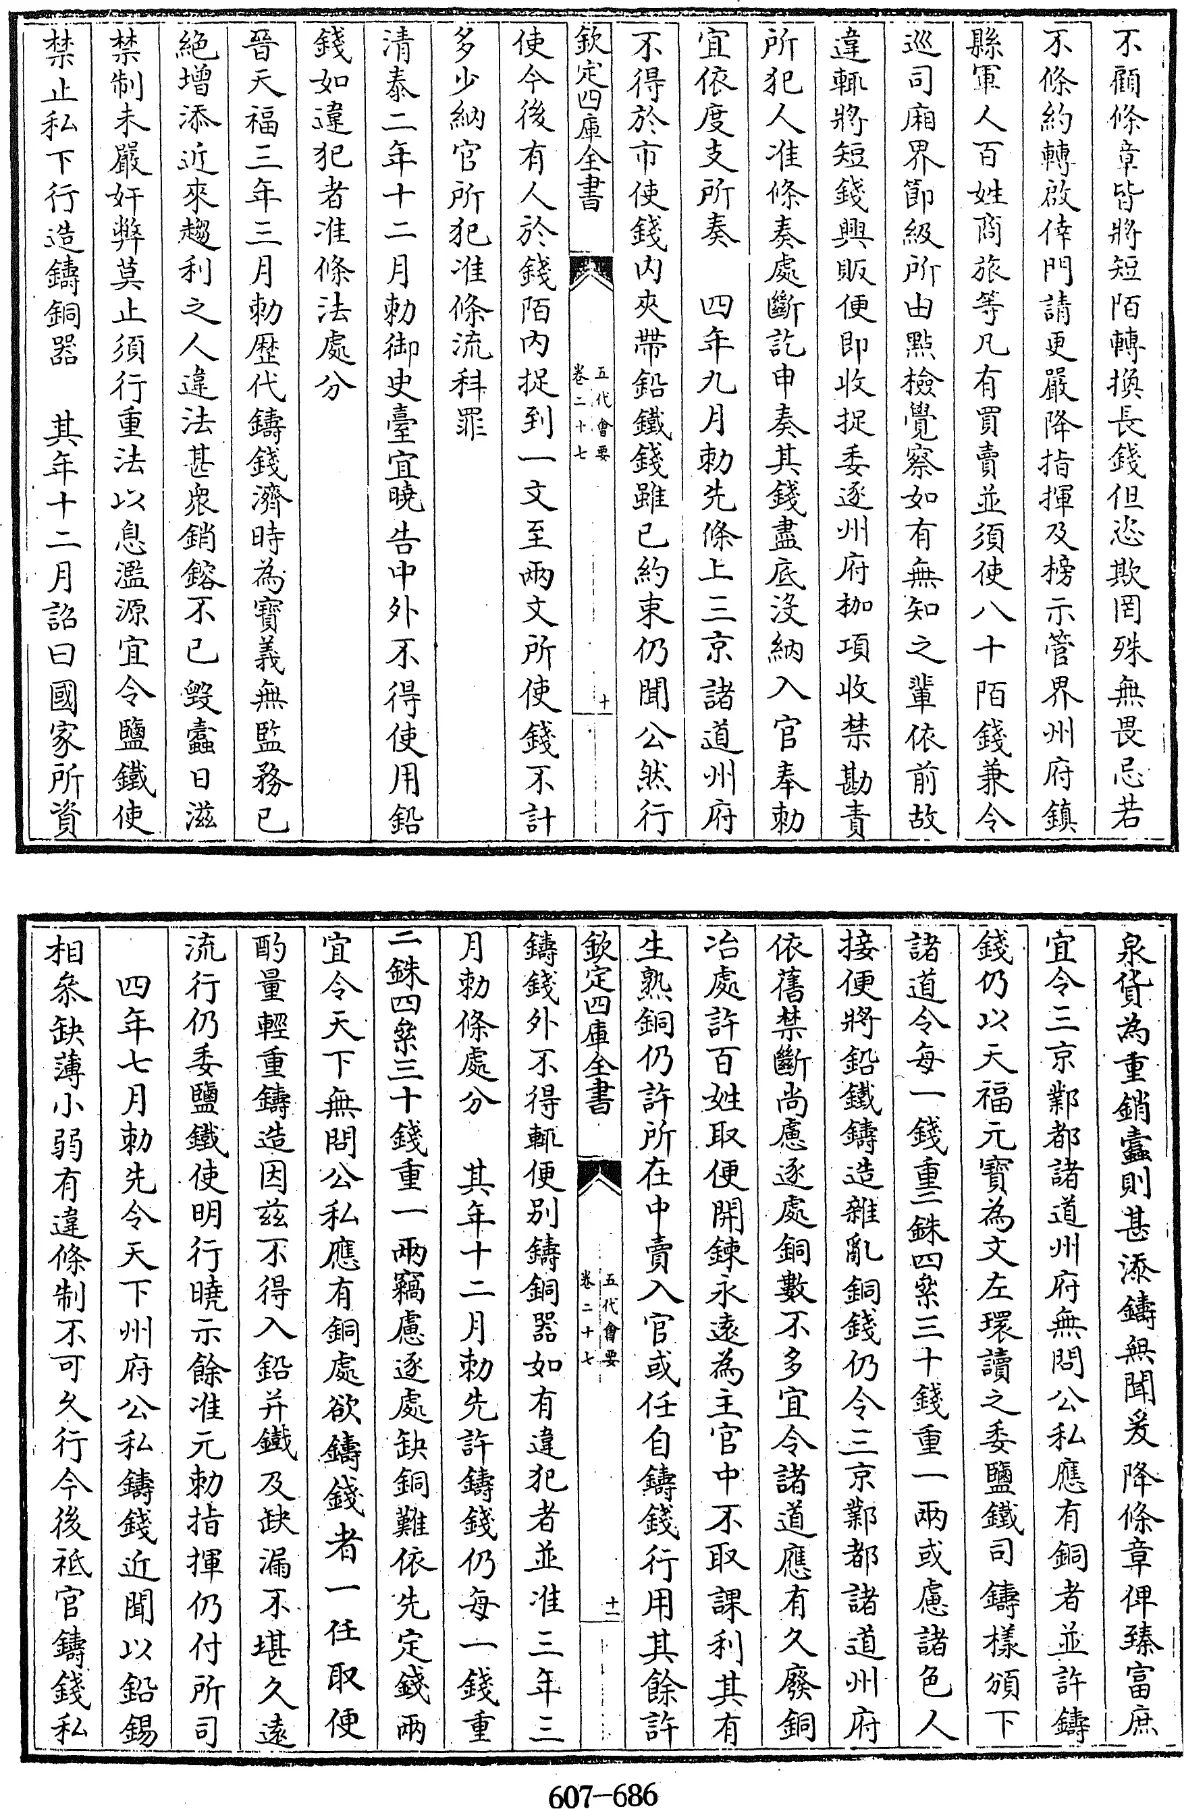 不顧條章皆將短陌轉換長錢但恣欺罔殊無畏忌若
不條約轉啟倖門請更嚴降指揮及榜示管界州府鎮
縣軍人百姓商旅等凡有買賣並須使八十陌錢兼令
巡司廂界節級所由點檢覺察如有無知之輩依前故
違輒將短錢興販便即收捉委逐州府枷項收禁勘責
所犯人准條奏處斷訖申奏其錢盡底沒納入官奉勅
宜依度支所奏　四年九月勅先條上三京諸道州府
不得於市使錢內夾帶鉛鐵錢雖已約束仍聞公然行
欽定四庫全書
五代會要
卷二十七
十
使今後有人於錢陌內捉到一文至兩文所使錢不計
多少納官所犯准條流科罪
清泰二年十二月勅御史臺宜曉告中外不得使用鉛
錢如違犯者准條法處分
晉天福三年三月勅歷代鑄錢濟時為寶義無監務已
絕增添近來趨利之人違法甚衆銷鎔不已毀蠹日滋
禁制未嚴奸弊莫止須行重法以息濫源宜令鹽鐵使
禁止私下行造鑄銅器　其年十二月詔曰國家所資
泉貨為重銷蠹則甚添鑄無聞爰降條章俾臻富庶
宜令三京鄴都諸道州府無問公私應有銅者並許鑄
錢仍以天福元寶為文左環讀之委鹽鐵司鑄樣頒下
諸道令每一錢重二銖四絫三十錢重一兩或慮諸色人
接便將鉛鐵鑄造雜亂銅錢仍令三京鄴都諸道州府
依舊禁斷尚慮逐處銅數不多宜令諸道應有久廢銅
冶處許百姓取便開鍊永遠為主官中不取課利其有
生熟銅仍許所在中賣入官或任自鑄錢行用其餘許
欽定四庫全書
五代會要
卷二十七
十一
鑄錢外不得輒便別鑄銅器如有違犯者並准三年三
月勅條處分　其年十二月勅先許鑄錢仍每一錢重
二銖四絫三十錢重一兩竊慮逐處缺銅難依先定錢兩
宜令天下無問公私應有銅處欲鑄錢者一任取便
酌量輕重鑄造因茲不得入鉛并鐵及缺漏不堪久遠
流行仍委鹽鐵使明行曉示餘准元勅指揮仍付所司
四年七月勅先令天下州府公私鑄錢近聞以鉛錫
相叅缺薄小弱有違條制不可久行今後祗官鑄錢私
607-686